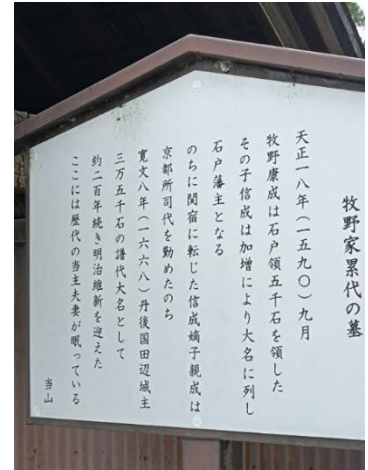 牧野家累代の墓
天正一八年（一五九〇）九月
牧野康成は石戸領五千石を領した
その子信成は加増により大名に列し
石戸藩主となる
のちに関宿に転じた信成嫡子親成は
京都所司代を勤めたのち
寛文八年（一六六八）丹後国田辺城主
三万五千石の譜代大名として
約二百年続き明治維新を迎えた
ここには歴代の当主夫妻が眠っている
当山